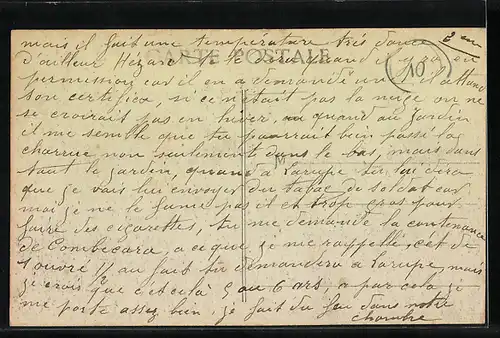 2 em
CARTE POSTALE
10
mais il fait une température très douce
d'ailleur Hézard te le dira quand il ira en
permission car il en a demandé un il attend
son certifica, si ce n'était pas la neige on ne
se croirait pas en hiver, quand au jardin
il me semble que tu pourrait bien passé la
charrue non seulement dans le bas, mais dans
tout le jardin, quand à Larupe tu lui dira
que je vais lui envoyer du tabac de soldat car
moi je ne le fume pas il et trop gros pour
faire des cigarettes, tu me demande la contenance
de Combecara, a ce que je me rappelle, c'et de
1 ouvré ½ au fait tu demandera a Larupe, mais
je crois que c'et celà 5 au 6 ars, a par cela je
me porte assez bien, je fait du feu dans notre
chambre